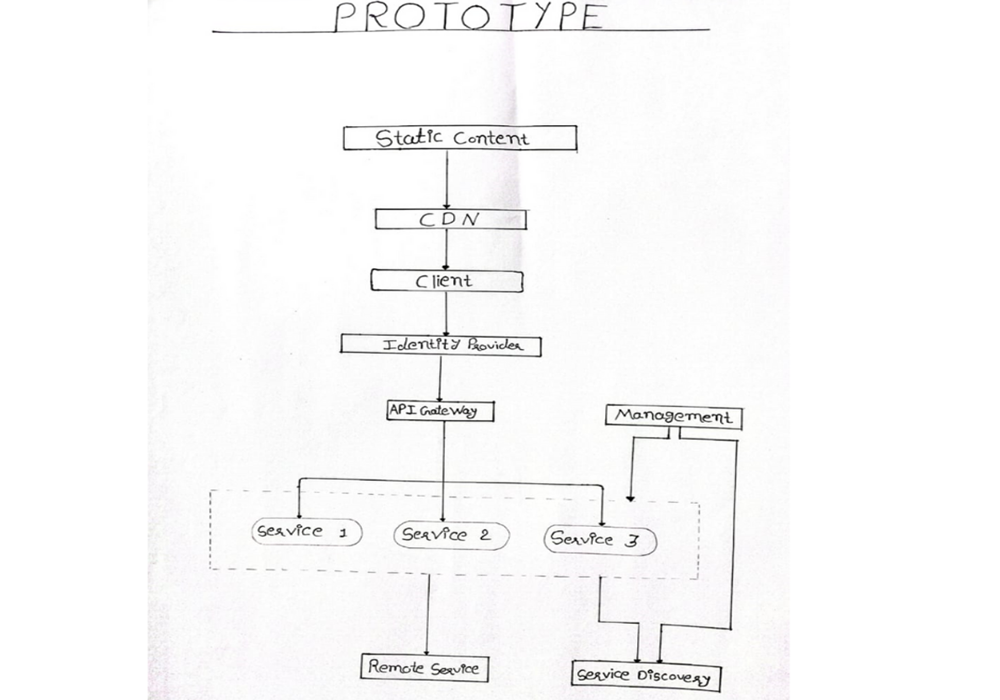 PROTOTYPE
Static Content
CDN
Client
Identity Provider
API GateWay
Management
Service 1
Service 2
Service 3
Remote Service
Service Discovery